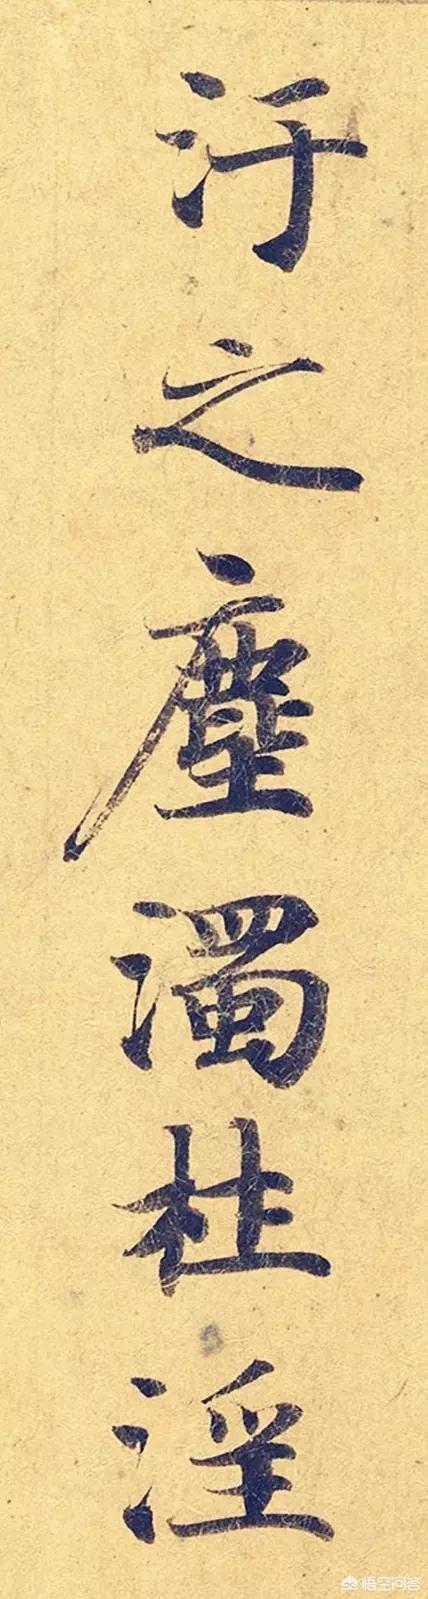 汙之塵濁杜淫
悟空问答